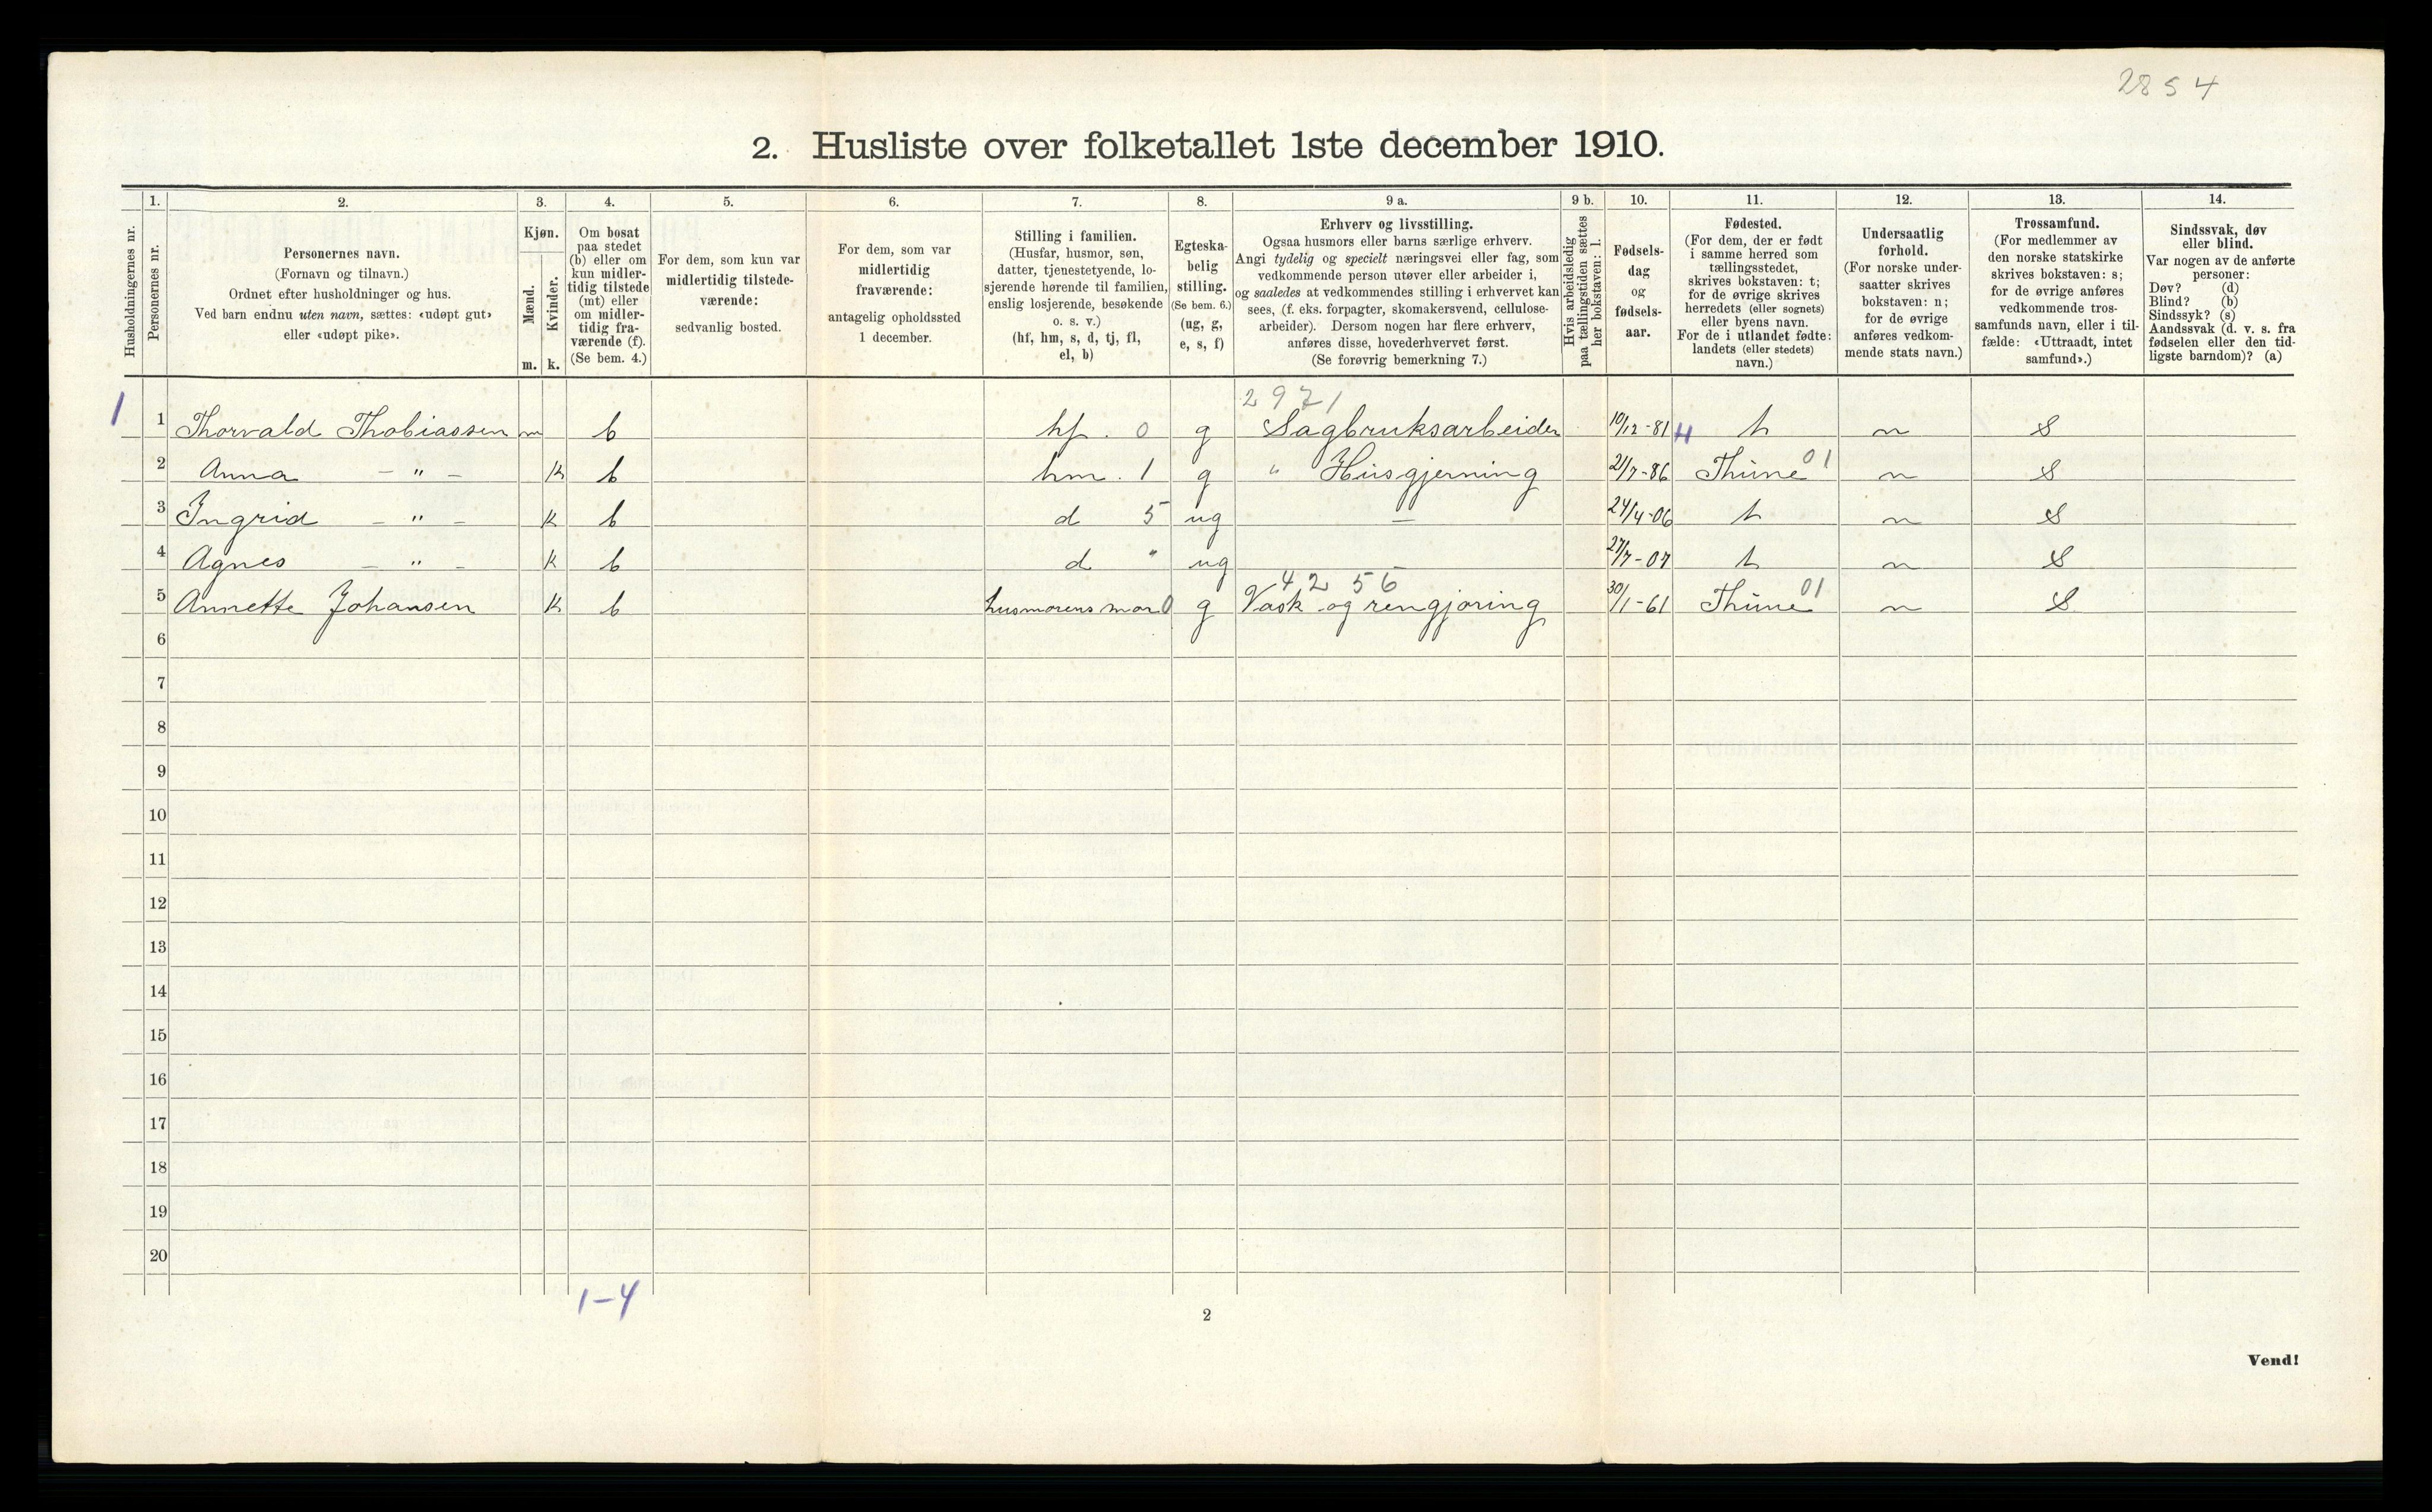 2854
2. Husliste over folketallet 1ste december 1910.
Husholdningernes nr.
1. Personernes nr.
2. Personernes navn.
(Fornavn og tilnavn.)
Ordnet efter husholdninger og hus.
Ved barn endnu uten navn, sættes: «udøpt gut»
eller «udøpt pike».
3. Kjøn.
Mænd. m.
Kvinder. k.
4. Om bosat
paa stedet
(b) eller om
kun midler-
tidig tilstede
(mt) eller
om midler-
tidig fra-
værende (f).
(Se bem. 4.)
5. For dem, som kun var
midlertidig tilstede-
værende:
sedvanlig bosted.
6. For dem, som var
midlertidig
fraværende:
antagelig opholdssted
1 december.
7. Stilling i familien.
(Husfar, husmor, søn,
datter, tjenestetyende, lo-
sjerende hørende til familien,
enslig losjerende, besøkende
o. s. v.)
(hf, hm, s, d, tj, fl,
el, b)
8. Egteska-
belig
stilling.
(Se bem. 6.)
(ug, g,
e, s, f)
9 a. Erhverv og livsstilling.
Ogsaa husmors eller barns særlige erhverv.
Angi tydelig og specielt næringsvei eller fag, som
vedkommende person utøver eller arbeider i,
og saaledes at vedkommendes stilling i erhvervet kan
sees, (f. eks. forpagter, skomakersvend, cellulose-
arbeider). Dersom nogen har flere erhverv,
anføres disse, hovederhvervet først.
(Se forøvrig bemerkning 7.)
9 b. Hvis arbeidsledig
paa tællingstiden sættes
her bokstaven: l.
10. Fødsels-
dag
og
fødsels-
aar.
11. Fødested.
(For dem, der er født
i samme herred som
tællingsstedet,
skrives bokstaven: t;
for de øvrige skrives
herredets (eller sognets)
eller byens navn.
For de i utlandet fødte:
landets (eller stedets)
navn.)
12. Undersaatlig
forhold.
(For norske under-
saatter skrives
bokstaven: n;
for de øvrige
anføres vedkom-
mende stats navn.)
13. Trossamfund.
(For medlemmer av
den norske statskirke
skrives bokstaven: s;
for de øvrige anføres
vedkommende tros-
samfunds navn, eller i til-
fælde: «Uttraadt, intet
samfund».)
14. Sindssvak, døv
eller blind.
Var nogen av de anførte
personer:
Døv? (d)
Blind? (b)
Sindssyk? (s)
Aandssvak (d. v. s. fra
fødselen eller den tid-
ligste barndom)? (a)
2971
1 1 Thorvald Thobiassen m b hf. 0 g Sagbruksarbeider 10/12-81 t n S
2 Anna — " — K b hm. 1 g " Husgjerning 21/7-86 Thune 01 n S
3 Ingrid — " — K b d 5 ug — 24/4-06 t n S
4 Agnes — " — K b d " ug 27/7-07 t n S
42 56
5 Annette Johansen K b husmorens mor 0 g Vask og rengjøring 30/1-61 Thune 01 n S
6
7
8
9
10
11
12
13
14
15
16
17
18
19
20
1-4
2
Vend!